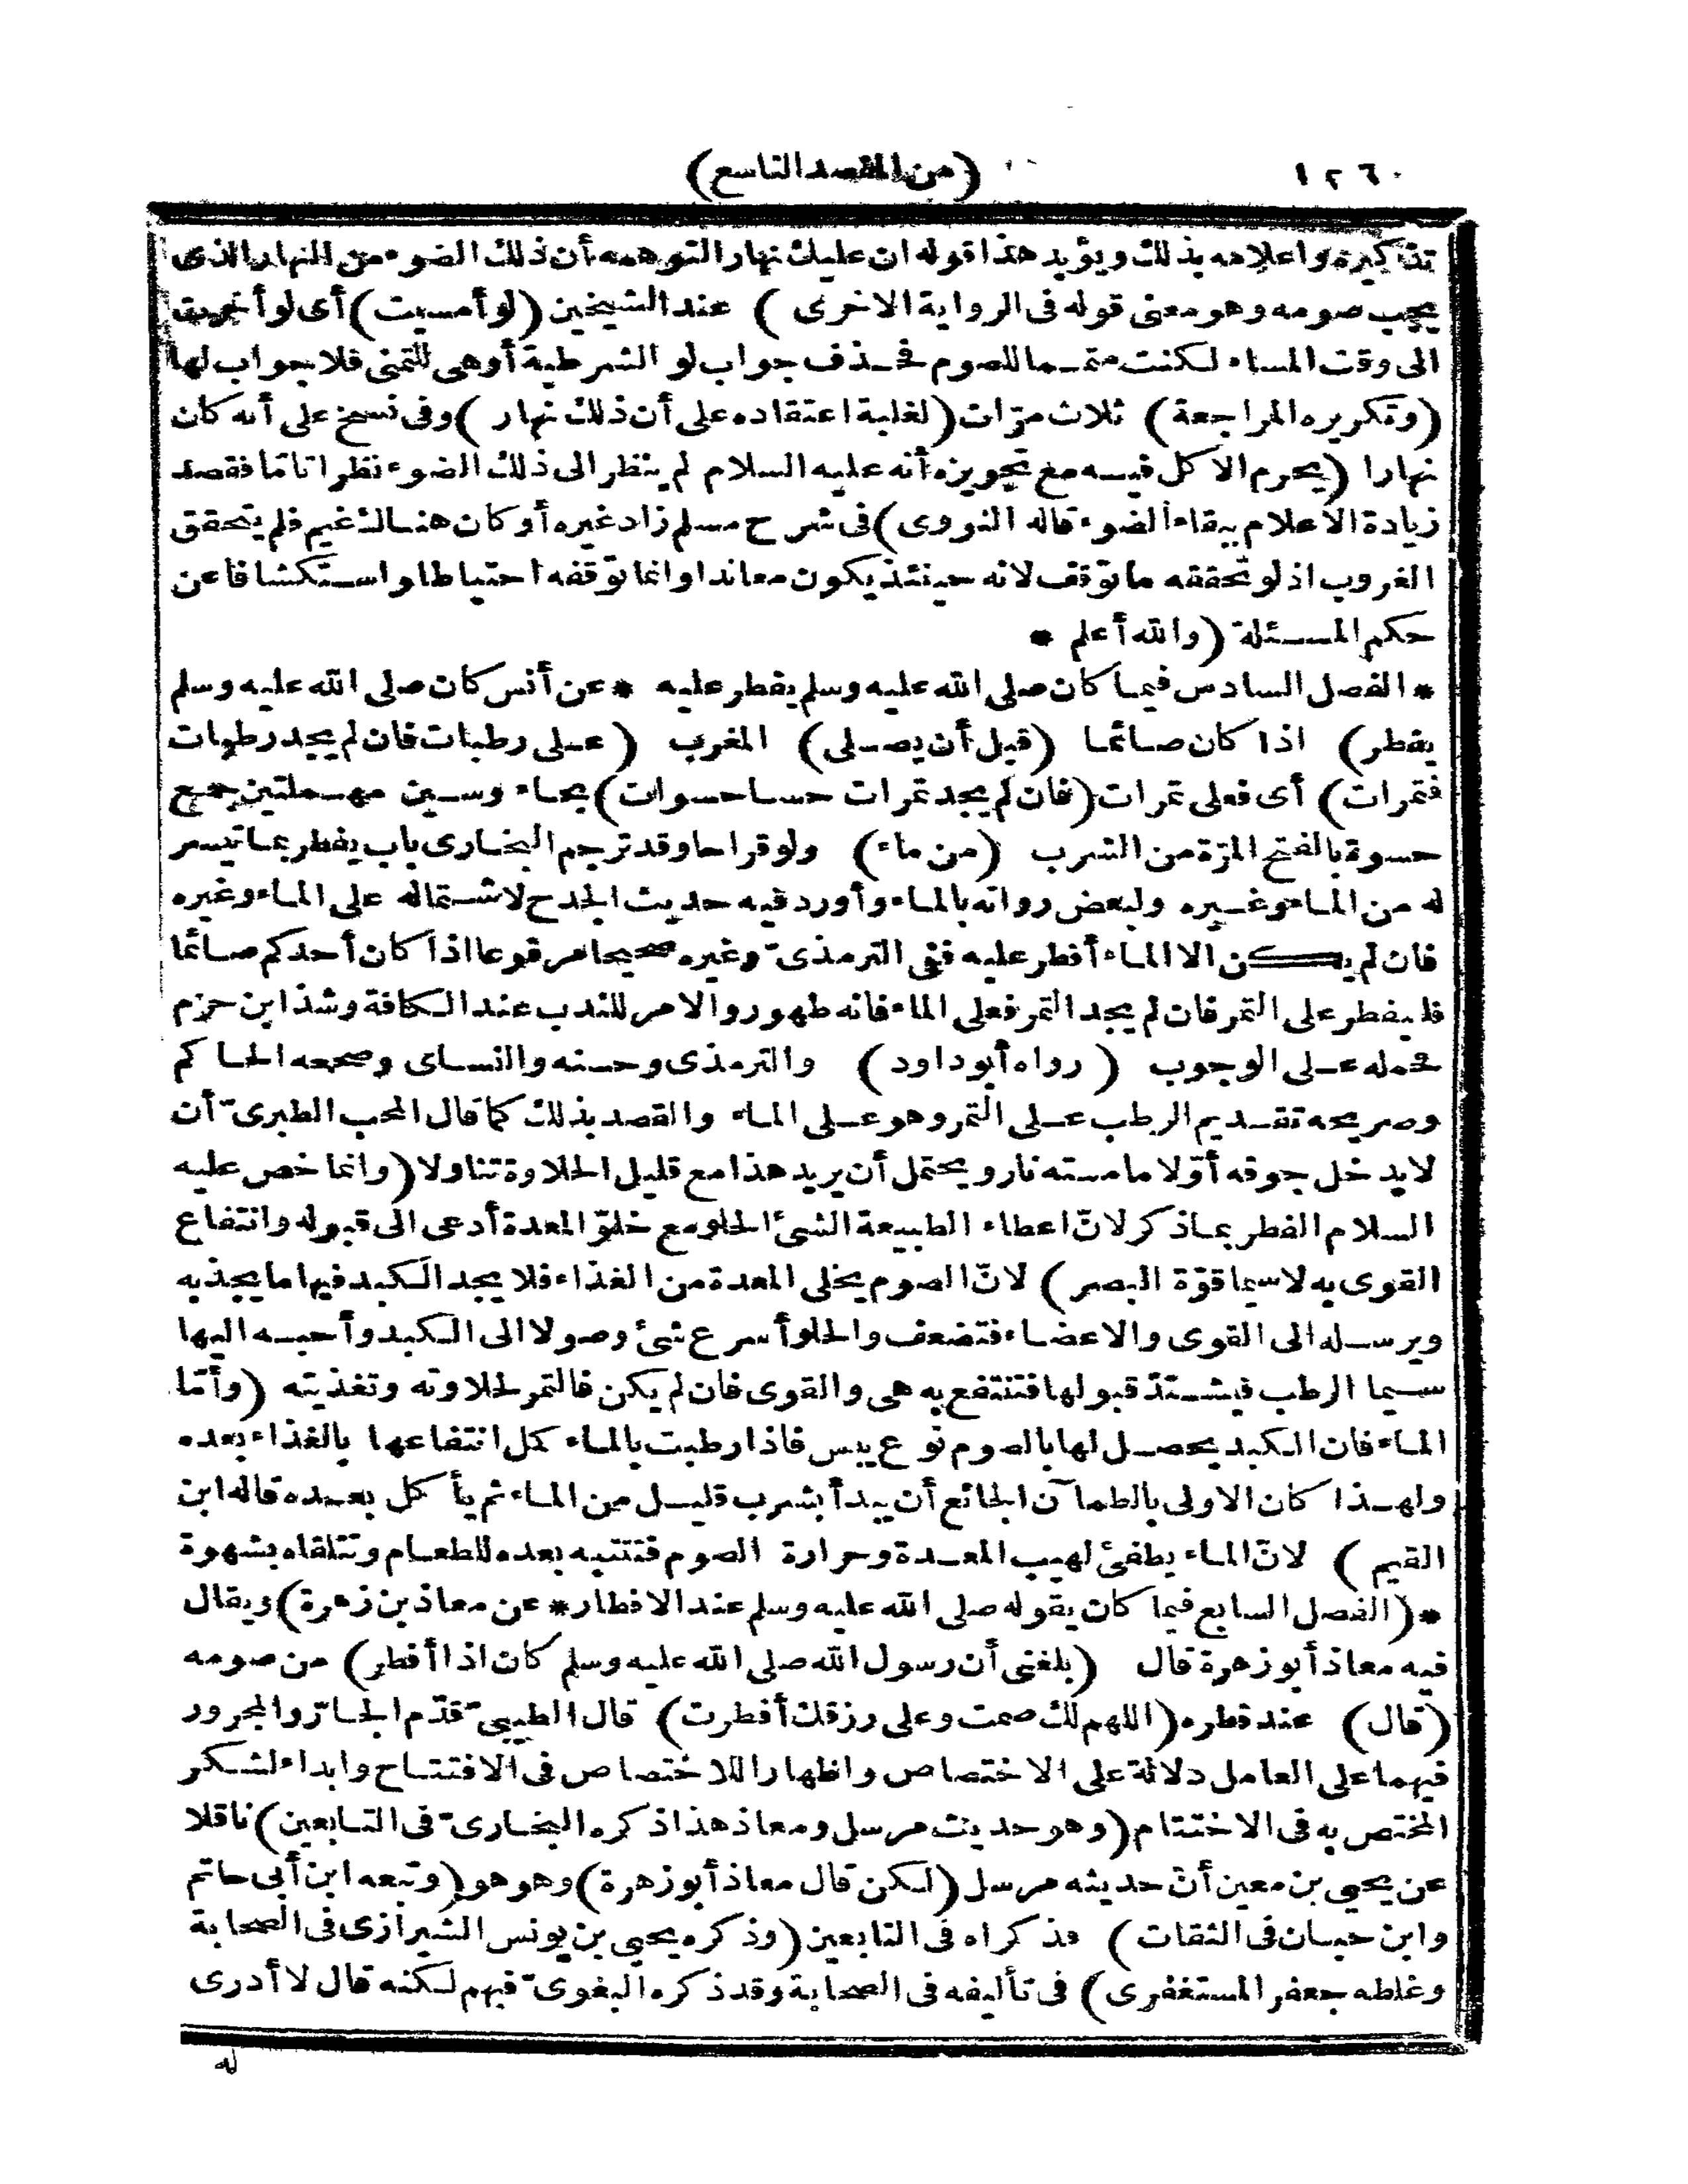 ١٢٦ (من المقصد التاسع)
تذكيره واعلامه بذلك ويؤيد هذا قوله ان عليك نهارا لتوهمه أن ذلك الضوء من النهار الذى
يجب صومه وهو معنى قوله فى الرواية الاخرى ) عند الشيخين (لو أمسيت) أى لو أخرت
الى وقت المساء لكنت متمما للصوم فحذف جواب لو الشرطية أو هى للتمنى فلا جواب لها
(وتكريره المراجعة) ثلاث مرّات (لغلبة اعتقاده على أن ذلك نهار ) وفى نسخ على أنه كان
نهارا (يحرم الاكل فيه مع تجويزه أنه عليه السلام لم ينظر الى ذلك الضوء نظرا تامّا فقصد
زيادة الاعلام ببقاء الضوء قاله النووى) فى شرح مسلم زاد غيره أو كان هناك غيم فلم يتحقق
الغروب اذ لو تحققه ما توّقف لانه حينئذ يكون معاندا وانما توّقفه احتياطا واستكشافا عن
حكم المسئلة (والله أعلم *
* الفصل السادس فيما كان صلى الله عليه وسلم يفطر عليه * عن أنس كان صلى الله عليه وسلم
يفطر) اذا كان صائما (قبل أن يصلى) المغرب (على رطبات فان لم يجد رطبات
فتمرات) أى فعلى تمرات (فان لم يجد تمرات حسا حسوات) بحاء وسين مهملتين جمع
حسوة بالفتح المرّة من الشرب (من ماء) ولو قراحا وقد ترجم البخارى باب يفطر بما تيسر
له من الماء وغيره ولبعض رواته بالماء وأورد فيه حديث الجدح لاشتماله على الماء وغيره
فان لم يكن الا الماء أفطر عليه ففى الترمذىّ وغيره صحيحا مرفوعا اذا كان أحدكم صائما
فليفطر على التمر فان لم يجد التمر فعلى الماء فانه طهور والامر للندب عند الكافة وشذ ابن حزم
فحمله على الوجوب (رواه أبو داود) والترمذى وحسنه والنساى وصححه الحاكم
وصريحه تقديم الرطب على التمر وهو على الماء والقصد بذلك كما قال المحب الطبرىّ أن
لا يدخل جوفه أوّلا ما مسته نار ويحتمل أن يريد هذا مع قليل الحلاوة تناولا (وانما خص عليه
السلام الفطر بما ذكر لانّ اعطاء الطبيعة الشئ الحلو مع خلوّ المعدة أدعى الى قبوله وانتفاع
القوى به لا سيما قوّة البصر ) لانّ الصوم يخلى المعدة من الغذاء فلا يجد الكبد فيها ما يجذبه
ويرسله الى القوى والاعضاء فتضعف والحلو أسرع شئ وصولا الى الكبد وأحبه اليها
سيما الرطب فيشتدّ قبولها فتنتفع به هى والقوى فان لم يكن فالتمر لحلاوته وتغذيته (وأمّا
الماء فان الكبد يحصل لها بالصوم نوع يبس فاذا رطبت بالماء كمل انتفاعها بالغذاء بعده
ولهذا كان الاولى بالظمآن الجائع أن يبدأ بشرب قليل من الماء ثم يأكل بعده قاله ابن
القيم ) لانّ الماء يطفئ لهيب المعدة وحرارة الصوم فتتنبه بعده للطعام وتتلقاه بشهوة
*(الفصل السابع فيما كان يقوله صلى الله عليه وسلم عند الافطار * عن معاذ بن زهرة) ويقال
فيه معاذ أبو زهرة قال (بلغنى أن رسول الله صلى الله عليه وسلم كان اذا أفطر) من صومه
(قال) عند فطره (اللهم لك صمت وعلى رزقك أفطرت) قال الطيبىّ قدّم الجارّ والمجرور
فيهما على العامل دلالة على الاختصاص واظهارا للاختصاص فى الافتتاح وابداء لشكر
المختص به فى الاختتام (وهو حديث مرسل ومعاذ هذا ذكره البخارىّ فى التابعين) ناقلا
عن يحيى بن معين أنّ حديثه مرسل (لكن قال معاذ أبو زهرة) وهو هو (وتبعه ابن أبى حاتم
وابن حبان فى الثقات ) فذكراه فى التابعين (وذكره يحيى بن يونس الشيرازى فى الصحابة
وغلطه جعفر المستغفرى) فى تأليفه فى الصحابة وقد ذكره البغوىّ فيهم لكنه قال لا أدرى
له